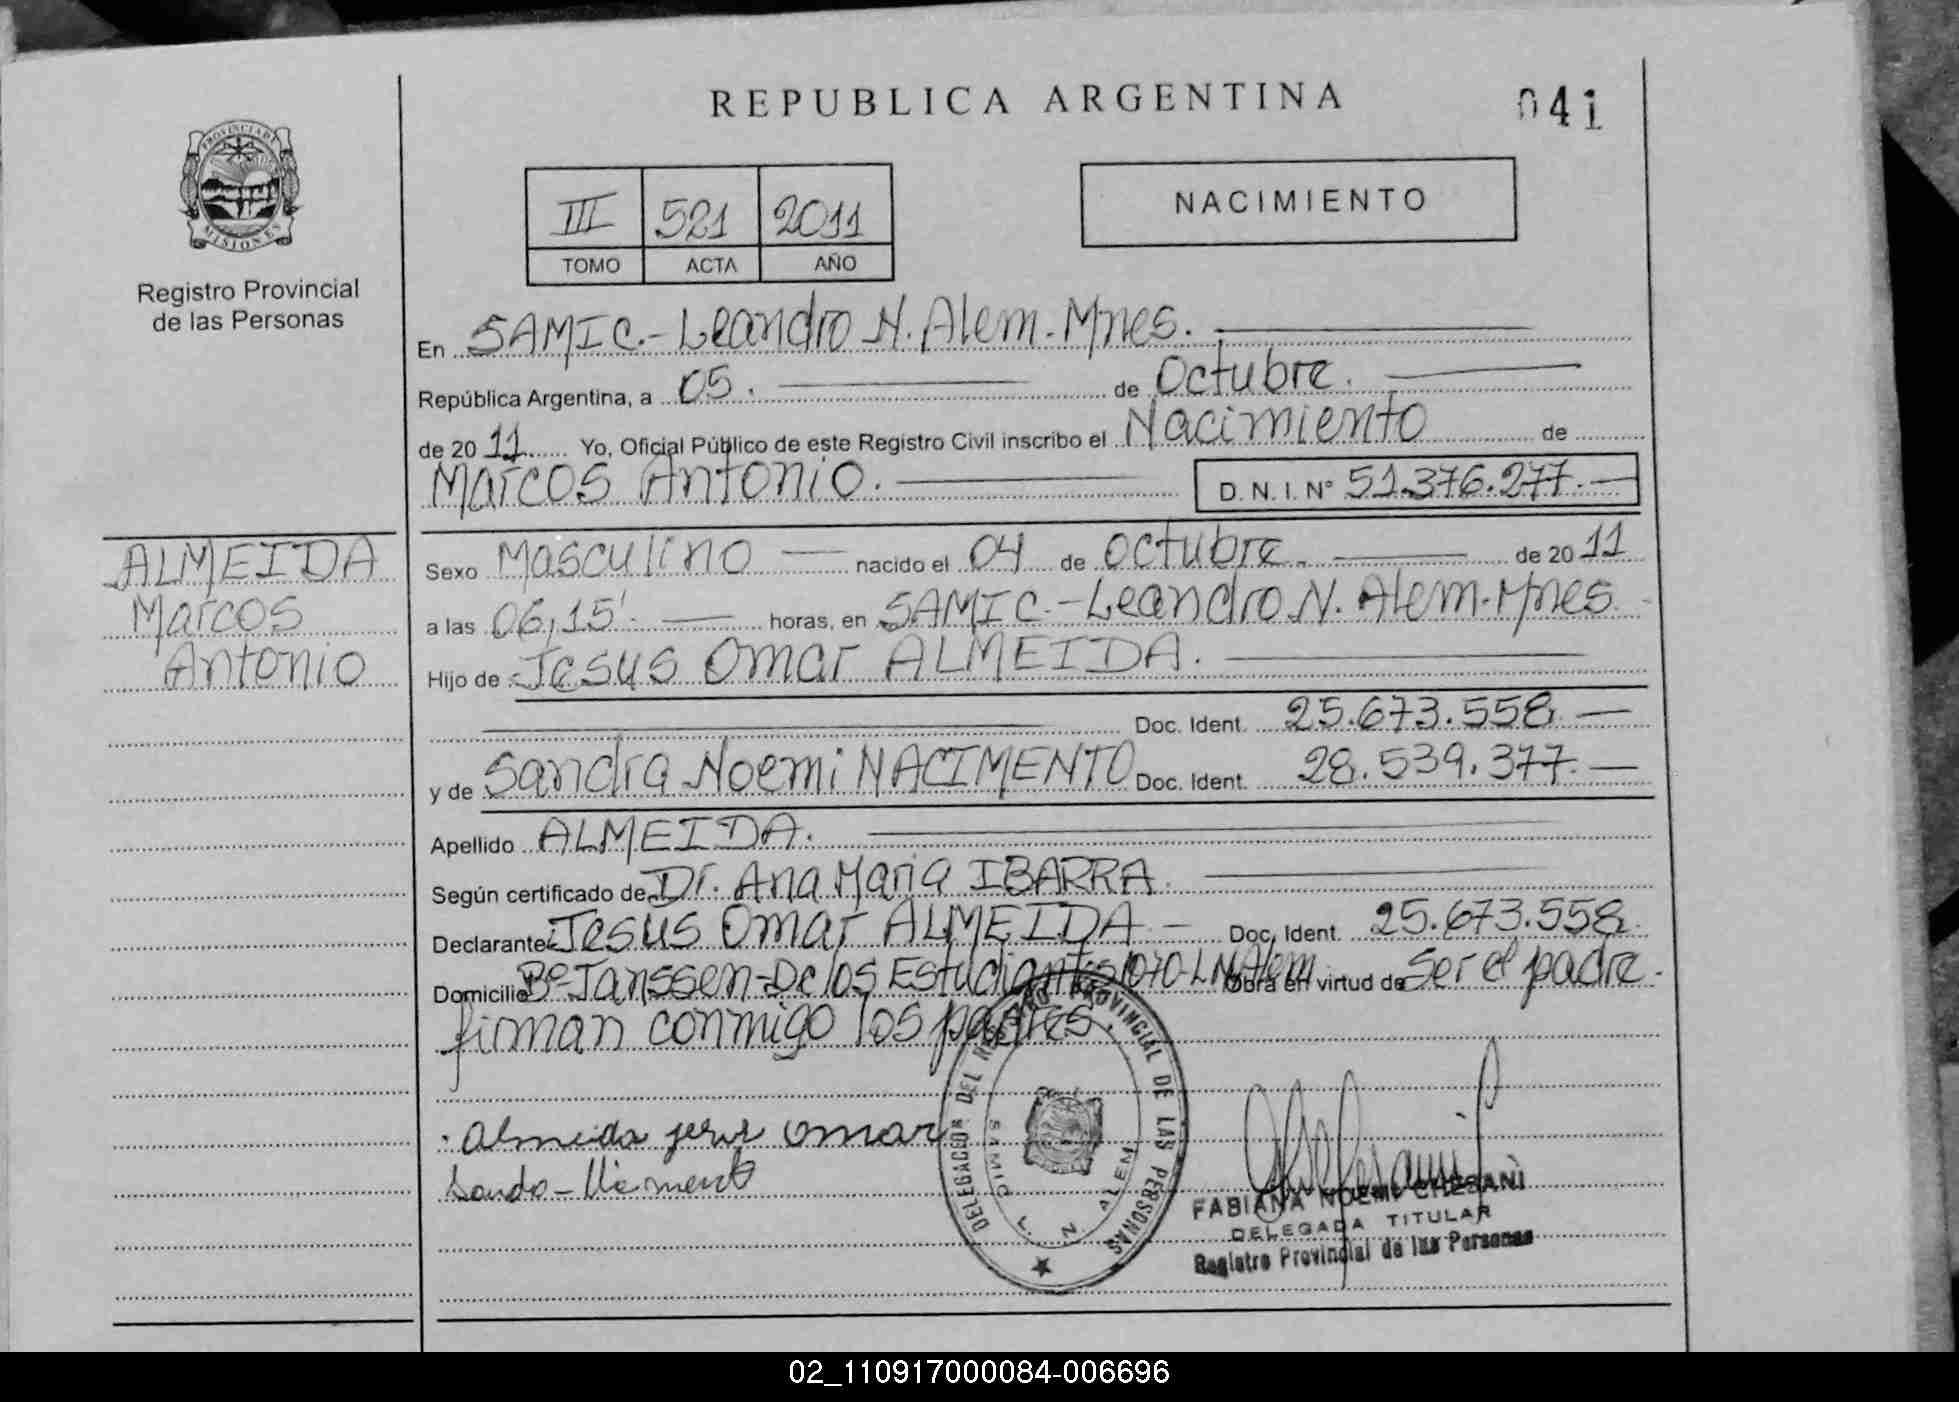 REPUBLICA ARGENTINA
041
PROVINCIA DE MISIONES
Registro Provincial
de las Personas
III 521 2011
TOMO ACTA AÑO
NACIMIENTO
En SAMIC.-Leandro N. Alem-Mnes.
República Argentina, a 05. de Octubre.
de 20 11 Yo, Oficial Público de este Registro Civil inscribo el Nacimiento de
Marcos Antonio. D. N. I. Nº 51.376.277.-
ALMEIDA
Marcos
Antonio
Sexo Masculino nacido el 04 de Octubre. de 20 11
a las 06,15'. horas, en SAMIC.-Leandro N. Alem-Mnes.
Hijo de Jesus Omar ALMEIDA.
Doc. Ident. 25.673.558.-
y de Sandra Noemi NACIMENTO Doc. Ident. 28.539.377.-
Apellido ALMEIDA.
Según certificado de Dr. Ana Maria IBARRA.
Declarante Jesus Omar ALMEIDA - Doc. Ident. 25.673.558.
Domicilio Bº Janssen-De los Estudiantes 1070-L.N.Alem Obra en virtud de Ser el padre.
firman conmigo los padres.
Almeida jesus omar
DELEGACION DEL REGISTRO PROVINCIAL DE LAS PERSONAS
SAMIC L. N. ALEM
FABIANA NOEMI CHESANI
DELEGADA TITULAR
Registro Provincial de las Personas
02_110917000084-006696